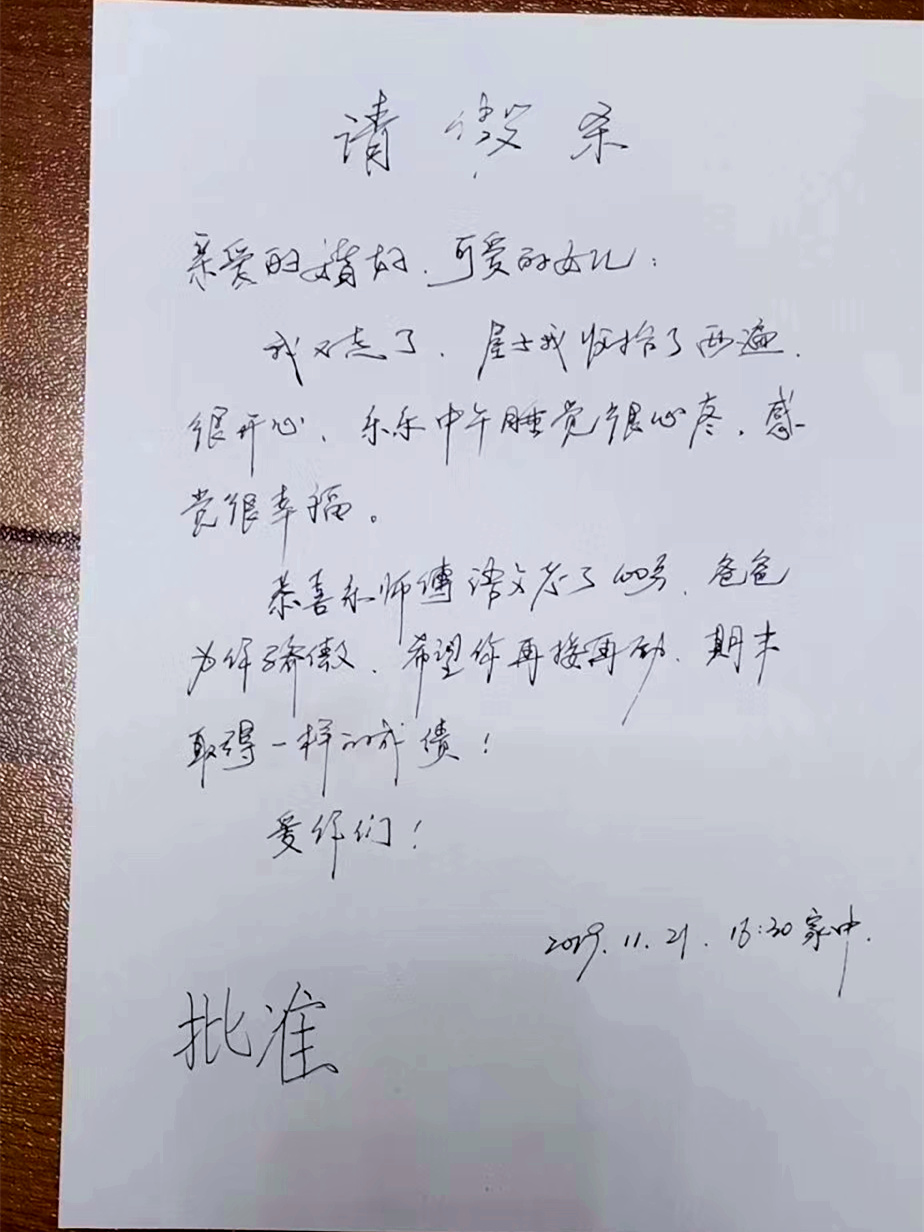 请假条
亲爱的婧好、可爱的女儿：
我又走了、屋子我收拾了两遍、
很开心、乐乐中午睡觉很心疼、感
觉很幸福。
恭喜乐师傅语文考了100分、爸爸
为你骄傲、希望你再接再励、期末
取得一样的成绩！
爱你们！
2019.11.21. 13:30 家中.
批准